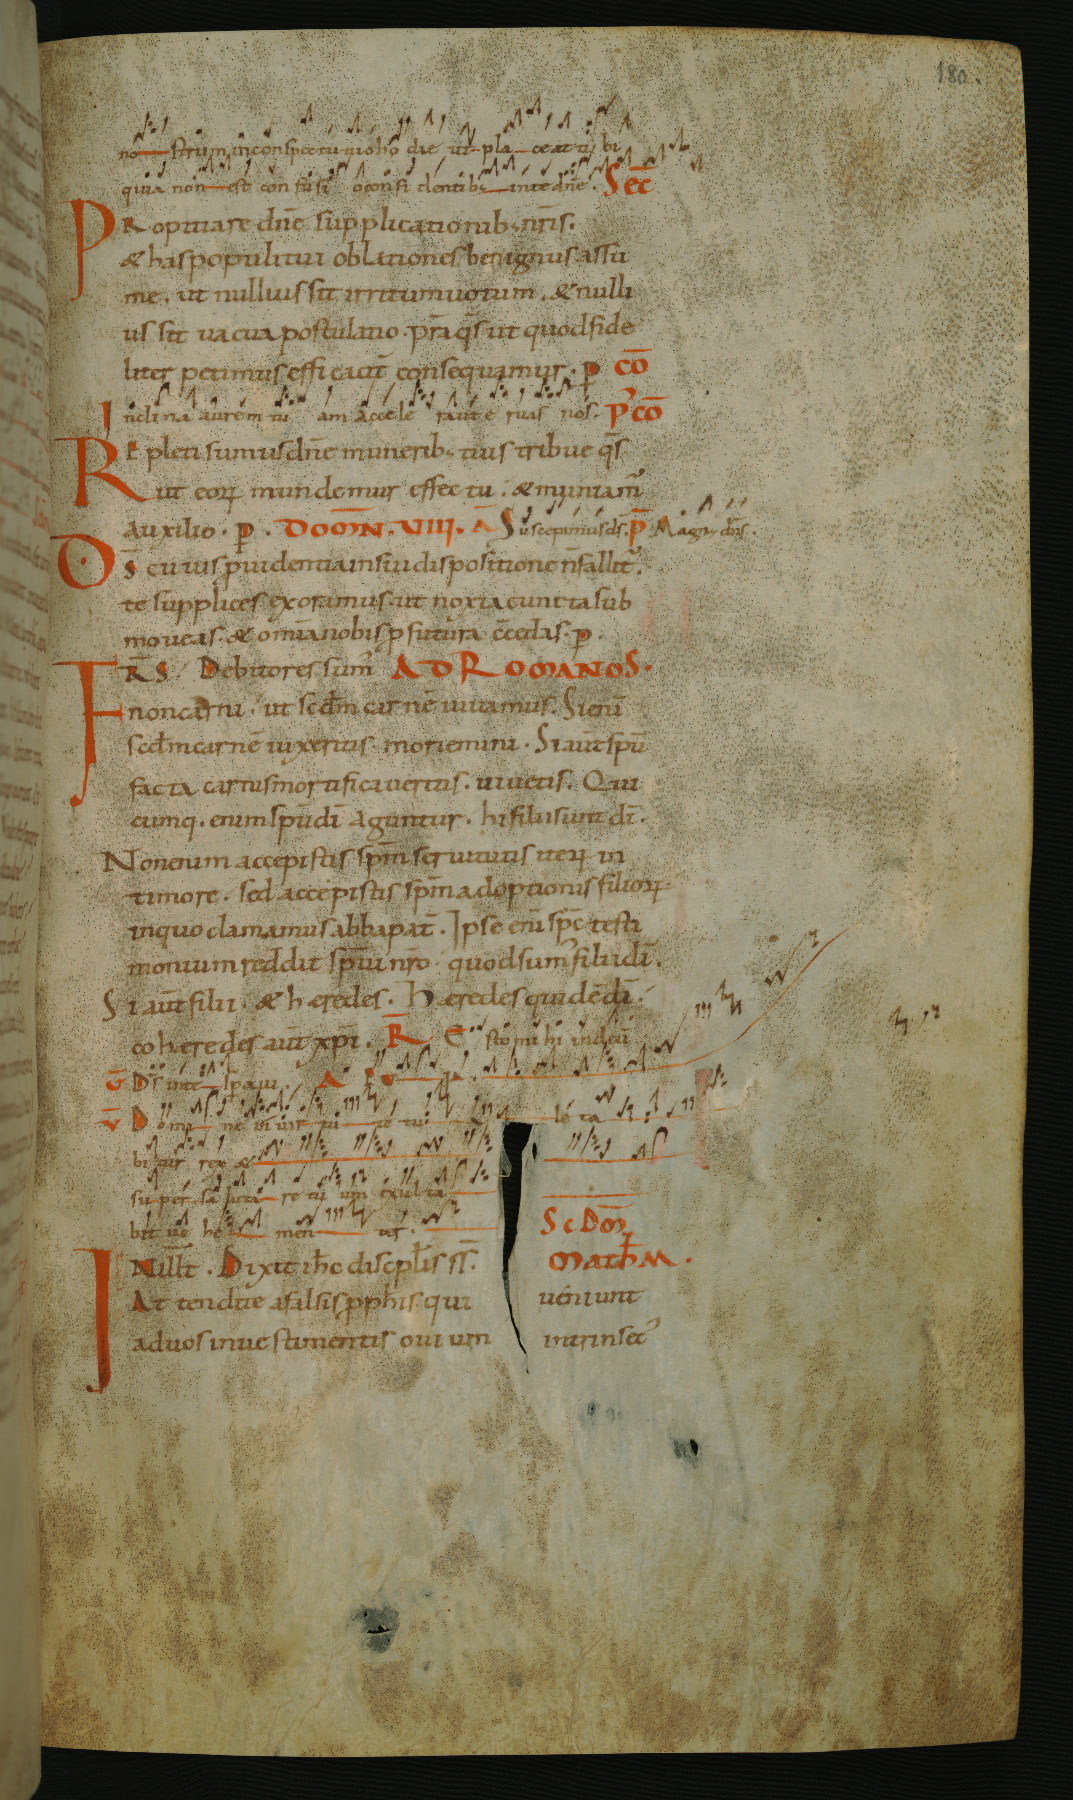 180.
no strum inconspectu tuo ho die ut pla ceat ti bi
quia non est con fu si o confi dentib; inte dñe. Sec̄
PRopitiare dñe supplicationib; nr̄is.
& has populi tui oblationes benignus assu
me. ut nullius sit irritum uotum. & nulli
us sit uacua postulatio. pr̄a q̄s ut quod fide
liter petimus efficacit̄ consequamur. p cō
Inclina aurem tu am accele ra ut e ruas nos. P̄ cō
REpleti sumus dñe munerib; tuis tribue q̄s
ut eoꝝ mundemur effectu. & muniam̄
auxilio. p. DOM̄N. VIIII. A Suscepimus ds̄. p̄ Magn. dn̄s.
Ds̄ cuius p̄uidentia in sui dispositione n̄ fallit̄.
te supplices exoramus. ut noxia cuncta sub
moueas. & omīa nobis p futura c̄cedas. p.
FR̄S Debitores sum̄ AD ROMANOS.
non carni. ut scd̄m carnē uiuamus. Si enī
scd̄m carnē uixeritis. moriemini. Si aūt spū
facta carnis mortificaueritis. uiuetis. Qui
cumq. enim spū dī aguntur. hi filii sunt dī.
Non enim accepistis spm̄ seruitutis iteꝝ in
timore. sed accepistis spm̄ adoptionis filioꝝ
inquo clamamus abba pat̄. Ipse enī spc̄ testi
monium reddit spūi nr̄o. quod sum̄ filii dī.
Si aūt filii. & hæredes. Hæredes quidē dī.
cohæredes aūt xpī. R̄ Esto mi hi indeū
V̄ Ds̄ inte speraui.
V̄ Domi ne in uir tu te tu a lę ta
bi tur rex &
su per sa luta re tu um exulta
bit ue he men ter. ScDom̄
INillt̄. Dixit ih̄c discpl̄is sı̄s. Math̄M.
Attendite afalsis p̄ph̄is. qui ueniunt
aduos inuestimentis ouium intrinsec̄